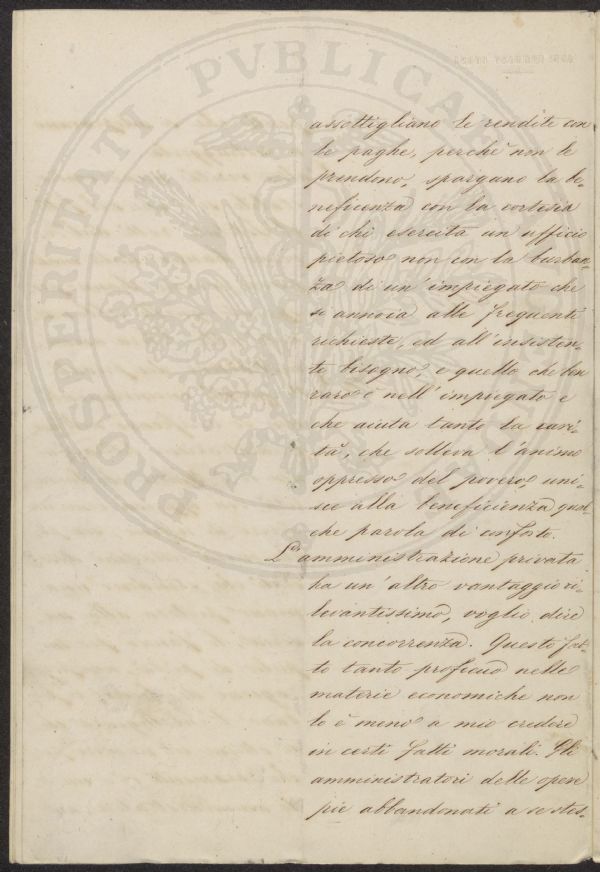 assottigliano le rendite con
le paghe, perchè non le
prendono, spargano la be-
neficenza con la cortesia
di chi esercita un ufficio
pietoso non con la burban-
za di un' impiegato che
si annoia alle frequenti
richieste, ed all' insisten-
te bisogno, e quello che ben
raro è nell' impiegato e
che aiuta tanto la cari-
tà, che solleva l' animo
oppresso del povero, uni-
sce alla beneficienza qual-
che parola di conforto.
L' amministrazione privata
ha un' altro vantaggio ri-
levantissimo, voglio dire
la concorrenza. Questo fat-
to tanto proficuo nelle
materie economiche non
lo è meno a mio credere
in certi fatti morali. Gli
amministratori delle opere
pie abbandonati a se stes-
PROSPERITATI PVBLICAE